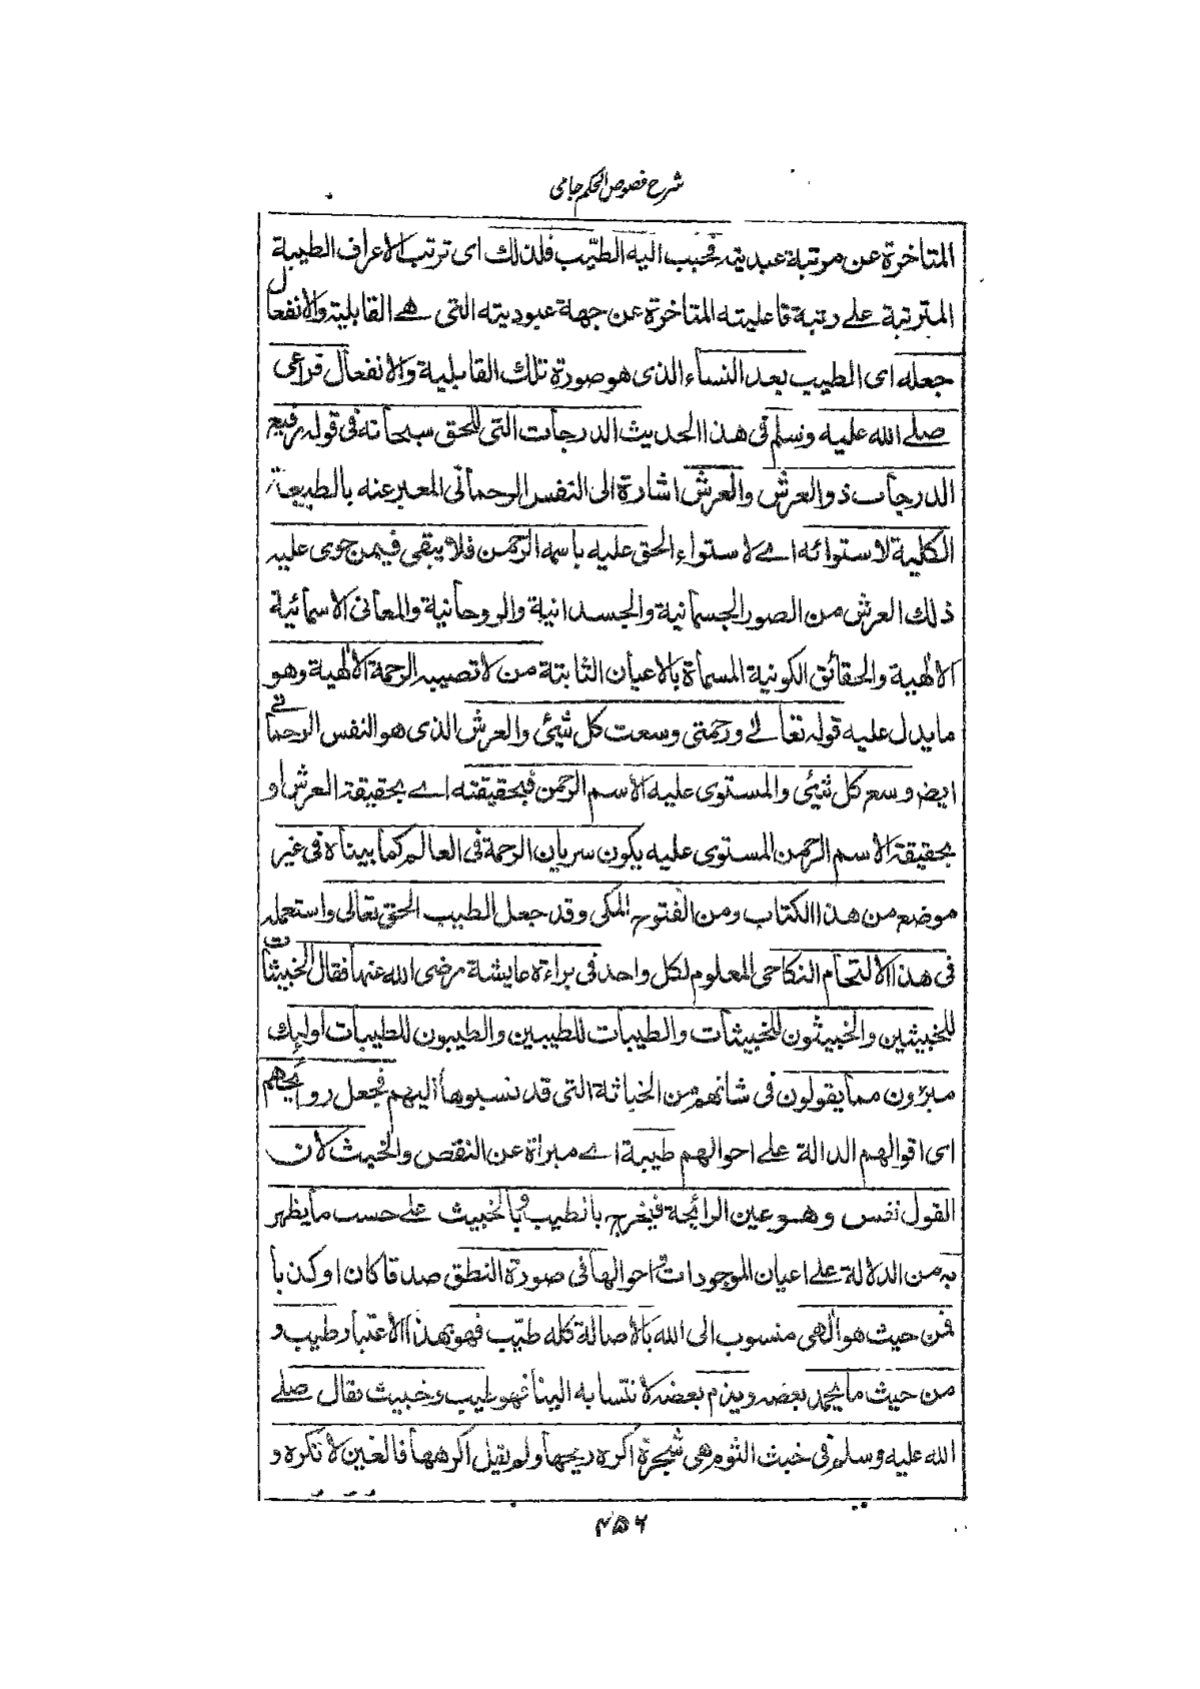 شرح فصوص الحكم جامى
المتاخرة عن مرتبة عبديته فحبب اليه الطيّب فلذلك اى ترتب الاعراف الطيبة
المترتبة على رتبة فاعليته المتاخرة عن جهة عبوديته التى هے القابلية والانفعال
جعله اى الطيب بعد النساء الذى هو صورة تلك القابلية والانفعال فراعى
صلے الله عليه وسلم فى هذا الحديث الدرجات التى للحق سبحانه فى قوله رفيع
الدرجات ذو العرش والعرش اشارة الى النفس الرحمانى المعبر عنه بالطبيعة
الكلية لاستوائه اے لاستواء الحق عليه باسمه الرحمن فلا يبقى فيمن حوى عليه
ذلك العرش من الصور الجسمانية والجسدانية والروحانية والمعانى الاسمائية
الالٰهية والحقائق الكونية المسماة بالاعيان الثابتة من لا تصيبه الرحمة الالٰهية وهو
مايدل عليه قوله تعالے ورحمتى وسعت كل شيئ والعرش الذى هو النفس الرحمانے
ايض وسع كل شيئ والمستوى عليه الاسم الرحمن فبحقيقته اے بحقيقة العرش او
بحقيقة الاسم الرحمن المستوى عليه يكون سريان الرحمة فى العالم كما بيناه فى غير
موضع من هذا الكتاب ومن الفتوح المكى وقد جعل الطيب الحق تعالى واستعمله
فى هذا الالتحام النكاحى المعلوم لكل واحد فى براءة عايشة رضى الله عنها فقال الخبيثات
للخبيثين والخبيثون للخبيثات والطيبات للطيبين والطيبون للطيبات اولئك
مبرؤن مما يقولون فى شانهم من الخباثة التى قد نسبوها اليهم فجعل روايحهم
اى اقوالهم الدالة علے احوالهم طيبة اے مبراة عن النقص والخبث لان
القول نفس وهو عين الرائحة فيخرج بالطيب وبالخبيث علے حسب مايظهر
به من الدلالة علے اعيان الموجودات واحوالها فى صورة النطق صدقا كان او كذبا
فمن حيث هو الٰهى منسوب الى الله بالاصالة كله طيّب فهو بهذا الاعتبار طيب و
من حيث ما يحمد بعضه ويذم بعضه لانتسابه الينا فهو طيب وخبيث فقال صلے
الله عليه وسلم فى خبث الثوم هى شجرة اكره ريحها ولم يقل اكرهها فالعين لا تكره و
٤٥٦